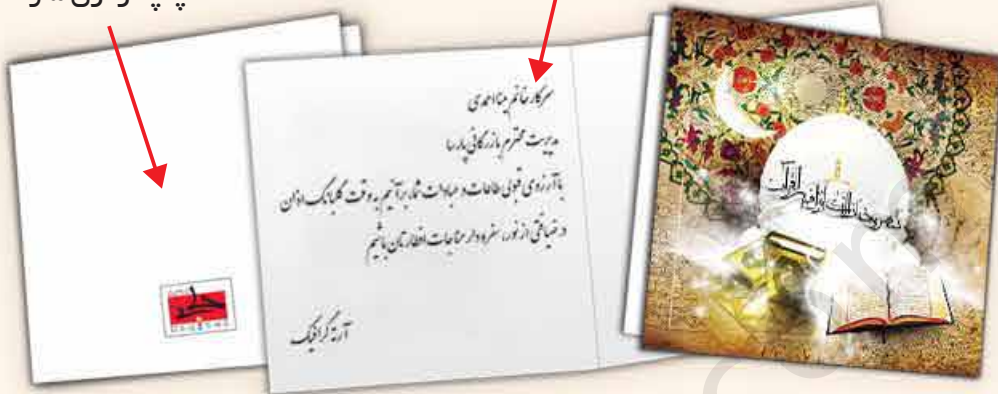 سرکار خانم مینا احمدی
مدیریت محترم بازرگانی پارسا
با آرزوی قبولی طاعات و عبادات شما، برآنیم به وقت گلبانگ اذان
در ضیافتی از نور، سفره دار مناجات افطارتان باشیم
آرته گرافیک
شهر رمضان الذی انزل فیه القرآن